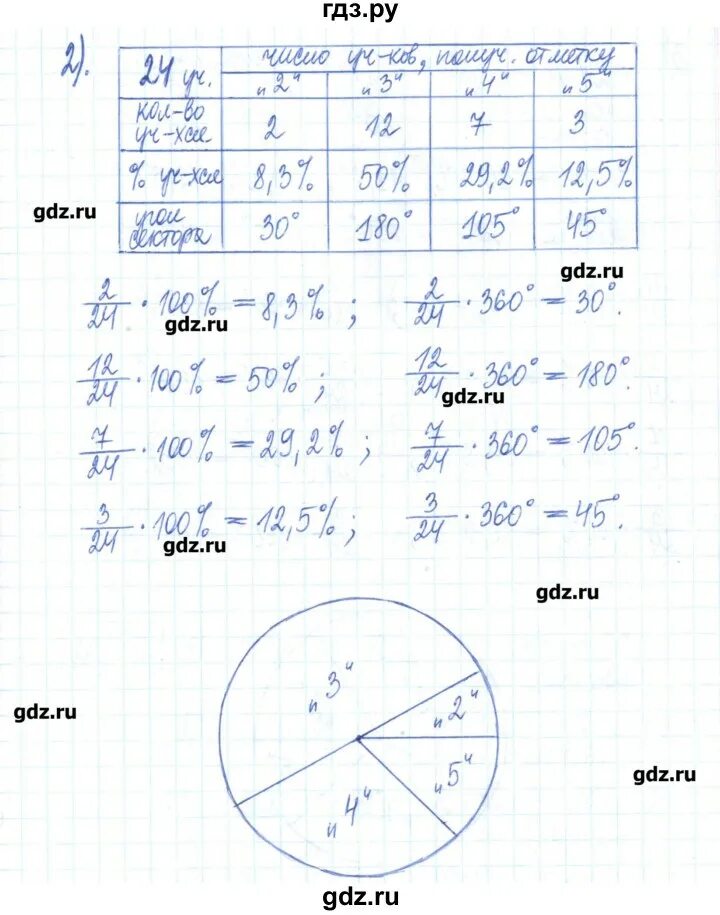 гдз.ру
2).
24 уч. число уч-ков, получ. отметку
„2“ „3“ „4“ „5“
кол-во уч-хся 2 12 7 3
% уч-хся 8,3% 50% 29,2% 12,5%
gdz.ru
угол сектора 30° 180° 105° 45°
gdz.ru
2/24 · 100% = 8,3% ; 2/24 · 360° = 30°.
gdz.ru
12/24 · 100% = 50% ; 12/24 · 360° = 180°.
gdz.ru
7/24 · 100% = 29,2% ; 7/24 · 360° = 105°.
3/24 · 100% = 12,5% ; 3/24 · 360° = 45°.
gdz.ru
gdz.ru
„3“
„2“
gdz.ru
„5“
gdz.ru
„4“
gdz.ru